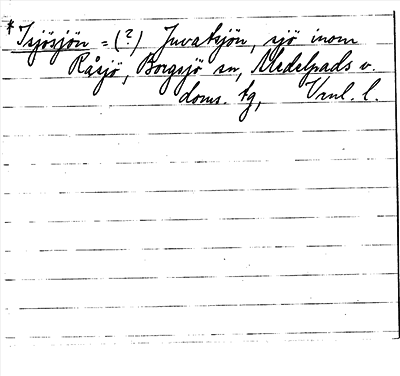 *Isjösjön = (?) Juvatsjön, sjö inom
Råsjö, Borgsjö sn, Medelpads v.
doms. tg, Vnl. l.